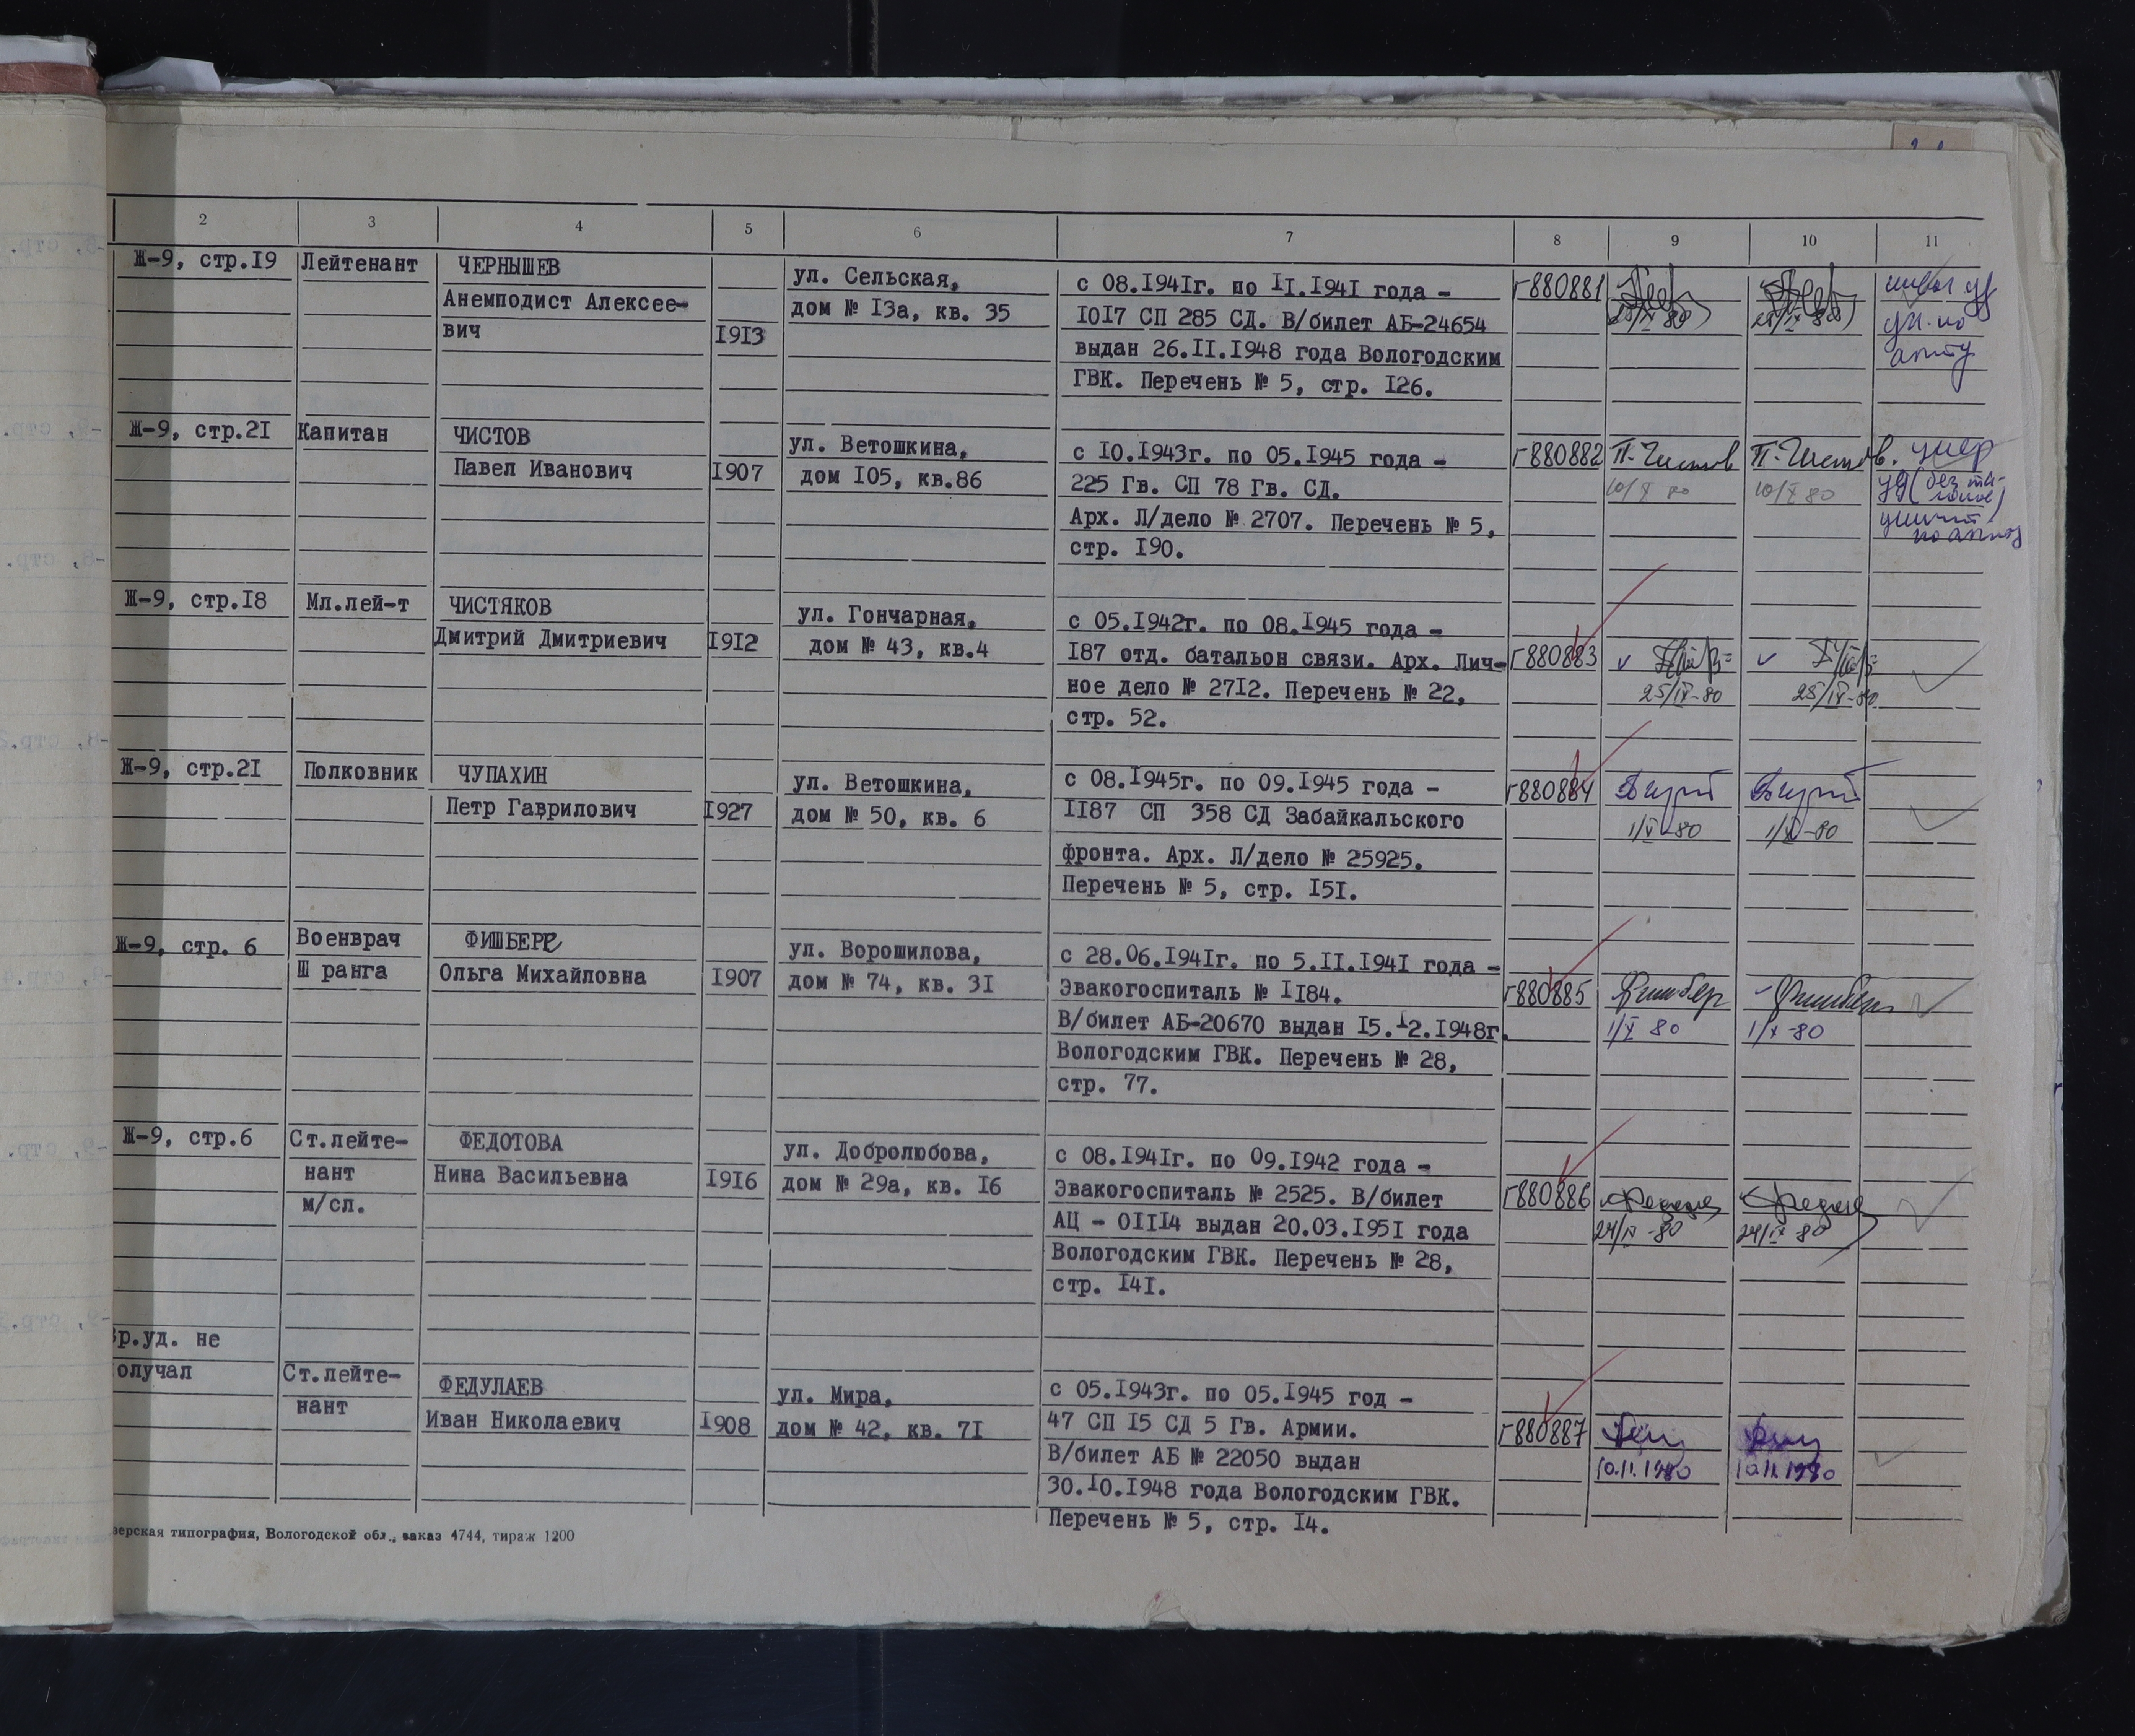 2 3 4 5 6 7 8 9 10 11
Ж-9, стр.19 Лейтенант ЧЕРНЫШЕВ
Анемподист Алексее-
вич 1913
ул. Сельская,
дом № 13а, кв. 35
с 08.1941г. по 11.1941 года -
1017 СП 285 СД. В/билет АБ-24654
выдан 26.11.1948 года Вологодским
ГВК. Перечень № 5, стр. 126.
г880881
Ж-9, стр.21 Капитан ЧИСТОВ
Павел Иванович 1907
ул. Ветошкина,
дом 105, кв.86
с 10.1943г. по 05.1945 года -
225 Гв. СП 78 Гв. СД.
Арх. Л/дело № 2707. Перечень № 5,
стр. 190.
г880882 П.Чистов П.Чистов. умер
10/X 80 10/X 80
Ж-9, стр.18 Мл.лей-т ЧИСТЯКОВ
Дмитрий Дмитриевич 1912
ул. Гончарная,
дом № 43, кв.4
с 05.1942г. по 08.1945 года -
187 отд. батальон связи. Арх. Лич-
ное дело № 2712. Перечень № 22,
стр. 52.
г880883
25/IX-80 25/IX-80
Ж-9, стр.21 Полковник ЧУПАХИН
Петр Гаврилович 1927
ул. Ветошкина,
дом № 50, кв. 6
с 08.1945г. по 09.1945 года -
1187 СП 358 СД Забайкальского
фронта. Арх. Л/дело № 25925.
Перечень № 5, стр. 151.
г880884
1/X-80 1/X-80
Ж-9, стр. 6 Военврач
Ш ранга
ФИШБЕРГ
Ольга Михайловна 1907
ул. Ворошилова,
дом № 74, кв. 31
с 28.06.1941г. по 5.11.1941 года -
Эвакогоспиталь № 1184.
В/билет АБ-20670 выдан 15.12.1948г.
Вологодским ГВК. Перечень № 28,
стр. 77.
г880885 Фишберг Фишберг
1/X 80 1/X-80
Ж-9, стр.6 Ст.лейте-
нант
м/сл.
ФЕДОТОВА
Нина Васильевна 1916
ул. Добролюбова,
дом № 29а, кв. 16
с 08.1941г. по 09.1942 года -
Эвакогоспиталь № 2525. В/билет
АЦ - 01114 выдан 20.03.1951 года
Вологодским ГВК. Перечень № 28,
стр. 141.
г880886
24/IX-80 24/IX 80
р.уд. не
олучал
Ст.лейте-
нант
ФЕДУЛАЕВ
Иван Николаевич 1908
ул. Мира,
дом № 42, кв. 71
с 05.1943г. по 05.1945 год -
47 СП 15 СД 5 Гв. Армии.
В/билет АБ № 22050 выдан
30.10.1948 года Вологодским ГВК.
Перечень № 5, стр. 14.
г880887
10.11.1980 10.11.1980
зерская типография, Вологодской обл., заказ 4744, тираж 1200